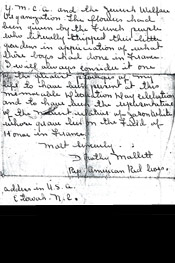 Y.M.C.A. and the Jewish Welfare
Organization. The flowers had
been given by the French people
who literally stripped their little
gardens in appreciation of what
there boys had done in France.
I will always consider it one
of the greatest privileges of my
life to have been present at this
memorable Decoration Day celebration
and to have been the representative
of the relatives of
whose graves lies on the Field of
Honor in France.
Most sincerely,
Dorothy Mallett
Rep. American Red Cross.
Address in U.S.A.
N.C.